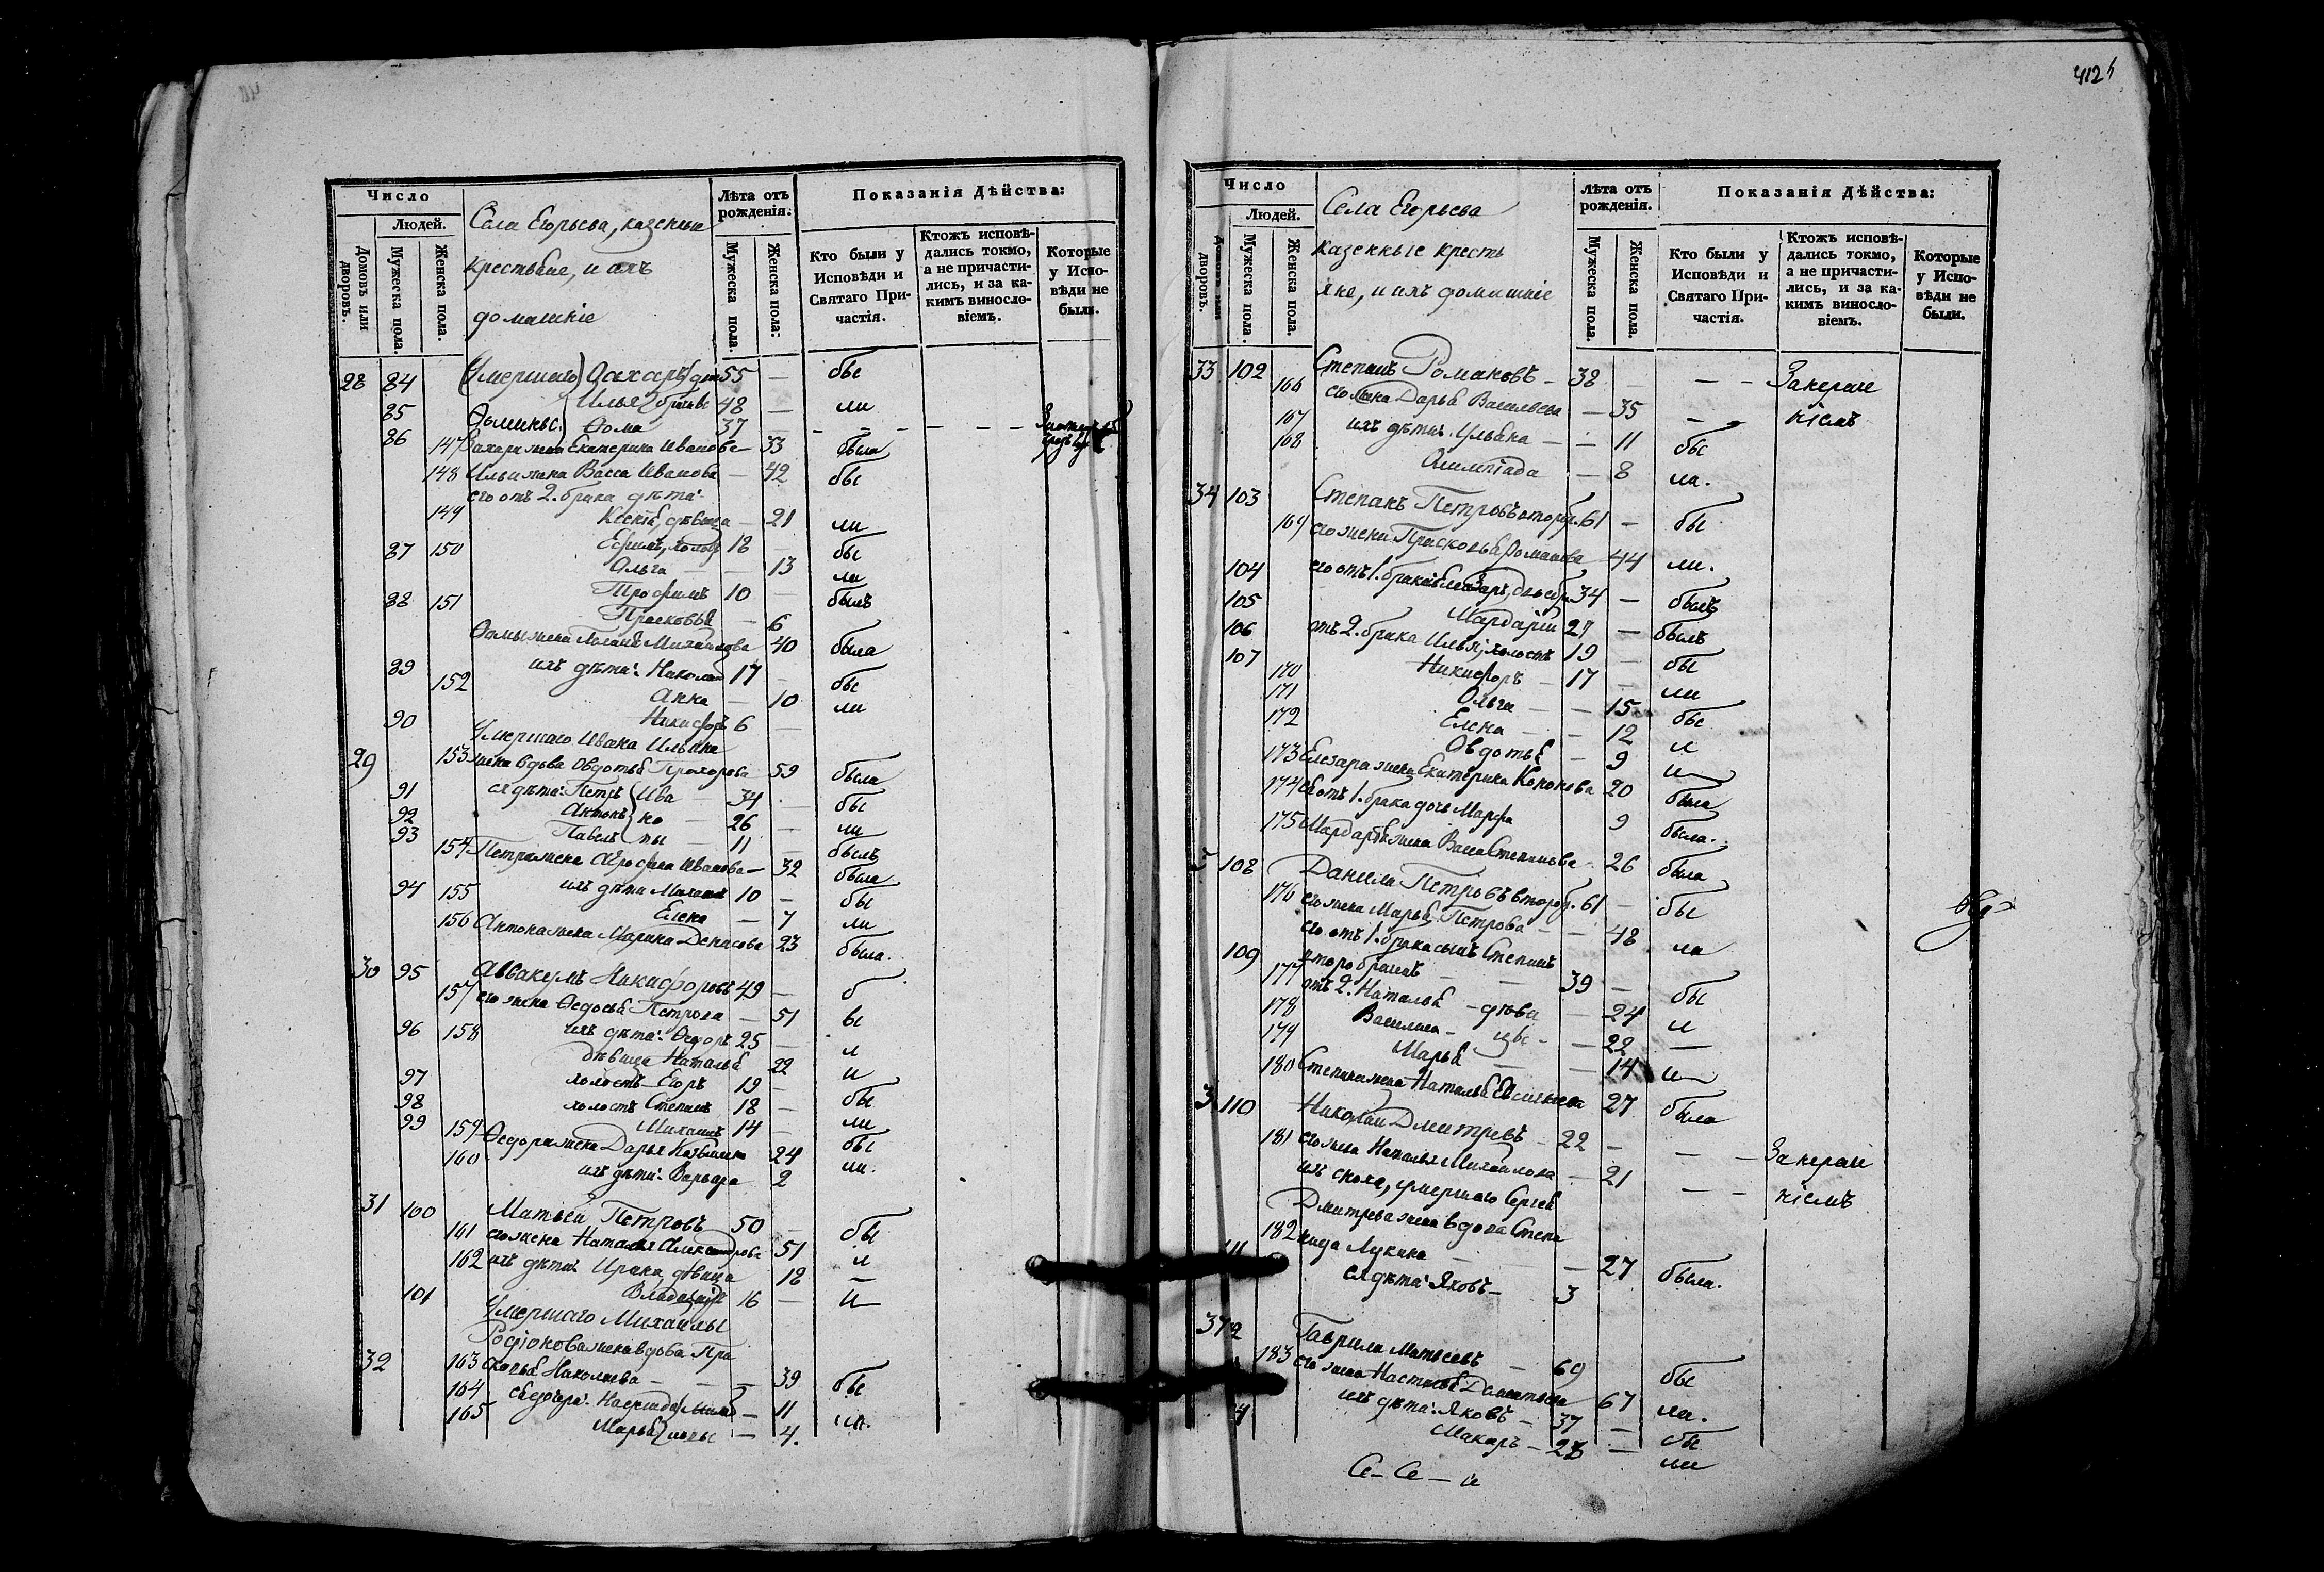 412
Число
Людей.
Домовъ или дворовъ.
Мужеска пола.
Женска пола.
Села Егорьева, казенные
крестьяне, и ихъ
домашніе
Лѣта отъ рожденія.
Мужеска пола.
Женска пола:
Показанія Дѣйства:
Кто были у Исповѣди и Святаго Причастія.
Ктожъ исповѣдались токмо, а не причастились, и за какимъ винословіемъ.
Которые у Исповѣди не были.
28 84 Умершаго Захаръ 55 — бы
85 Илья братья 48 — ли
86 Ѳомины. Ѳома 37 — — — — — —
147 Захара жена Екатерина Иванова — 33 была
148 Ильи жена Васса Иванова — 42 бы
его отъ 2. брака дѣти:
149 Ксенія, дѣвица — 21 ли
87 150 Ефимъ, холостъ 18 — бы
Ольга — — 13 ли
88 151 Трофимъ 10 — былъ
Прасковья — 6
Ѳомы жена Михайлова 40 была
89 ихъ дѣти: Николай 17 — бы
152 Анна — 10 ли
90 Никифоръ 6 —
Умершаго Ивана Ильина
29 153 жена вдова Овдотья Прохорова 59 была
91 ея дѣти: Петръ Ива 34 — бы
92 Антонъ но 26 — ли
93 Павелъ вы 11 — былъ
154 Петра жена Иванова — 32 была
94 155 ихъ дѣти Михаилъ 10 — бы
Елена — 7 ли
156 Антона жена Марина Денисова 23 была.
30 95 Аввакумъ Никифоровъ 49 — б
157 его жена Ѳедосья Петрова — 51 ы
96 158 ихъ дѣти: Ѳедоръ 25 — л
дѣвица Наталья 22 и
97 холостъ Егоръ 19 — бы
98 холостъ Степанъ 18 — ли
99 Михаилъ 14 — бы
159 Ѳедора жена Дарья Козьмина 24 ли.
160 ихъ дѣти: Варвара 2
31 100 Матвей Петровъ 50 — бы
161 его жена Наталья Александрова 51 л
162 ихъ дѣти Ирина, дѣвица 18 —
101 Владимиръ 16 — и
Умершаго Михаилы
Родіонова жена вдова Пра
32 163 сковья Николаева — — — 39 бы
164 ея дочери: Надежда Михай — 11 ли.
165 Марья ловы — 4.
Число
Людей.
дворовъ.
Мужеска пола
Женска пола.
Села Егорьева
казенные кресть
яне, и ихъ домашніе
Лѣта отъ рожденія.
Мужеска пола.
Женска пола.
Показанія Дѣйства:
Кто были у Исповѣди и Святаго Причастія.
Ктожъ исповѣдались токмо, а не причастились, и за какимъ винословіемъ.
Которые у Исповѣди не были.
33 102 Степанъ Романовъ — 38 — — — Занерач
166 его жена Дарья Васильева — 35 — — ніемъ
167 ихъ дѣти: Ульяна — — 11 бы
168 Олимпіада — 8 ли.
34 103 Степанъ Петровъ второбр. 61 — бы
169 его жена Прасковья Романова 44 ли.
104 его отъ 1. брака Елеазаръ, второбр. 34 — былъ
105 Мардарій 27 — былъ
106 отъ 2. брака Илья, холостъ 19 — бы
107 Никифоръ — 17 — ли
170 Ольга — — 15 бы
171 Елена — — 12 л
172 Овдотья — 9 и
173 Елеазара жена Екатерина Кононова 20 была
174 его отъ 1. брака дочь Марфа 9 была.
175 Мардарія жена Васса Степанова 26 была
5 108 Данила Петровъ второбр. 61 — бы
176 его жена Марья Петрова — — 48 ла
его отъ 1. брака сынъ Степанъ
109 второбрачн — — 39 — бы
177 отъ 2. Наталья — дѣви — 24 л
178 Василиса — цы — — 22 —
179 Марья — — 14 и
180 Степана жена Наталья Евсигнеева 27 была
3 110 Николай Дмитревъ — 22 — — — Занерач
181 его жена Наталья Михайлова — 21 — — ніемъ
ихъ сноха, умершаго Сергея
Дмитрева жена вдова Степа
182 нида Лукина — — 27 была.
111 ея дѣти: Яковъ — 3
37 2 Гаврила Матвеевъ — 69 бы
183 его жена Настасья Дементьева 67 ли.
ихъ дѣти: Яковъ — 37 — бы
4 Макаръ — 28 — ли
Се — Се — й